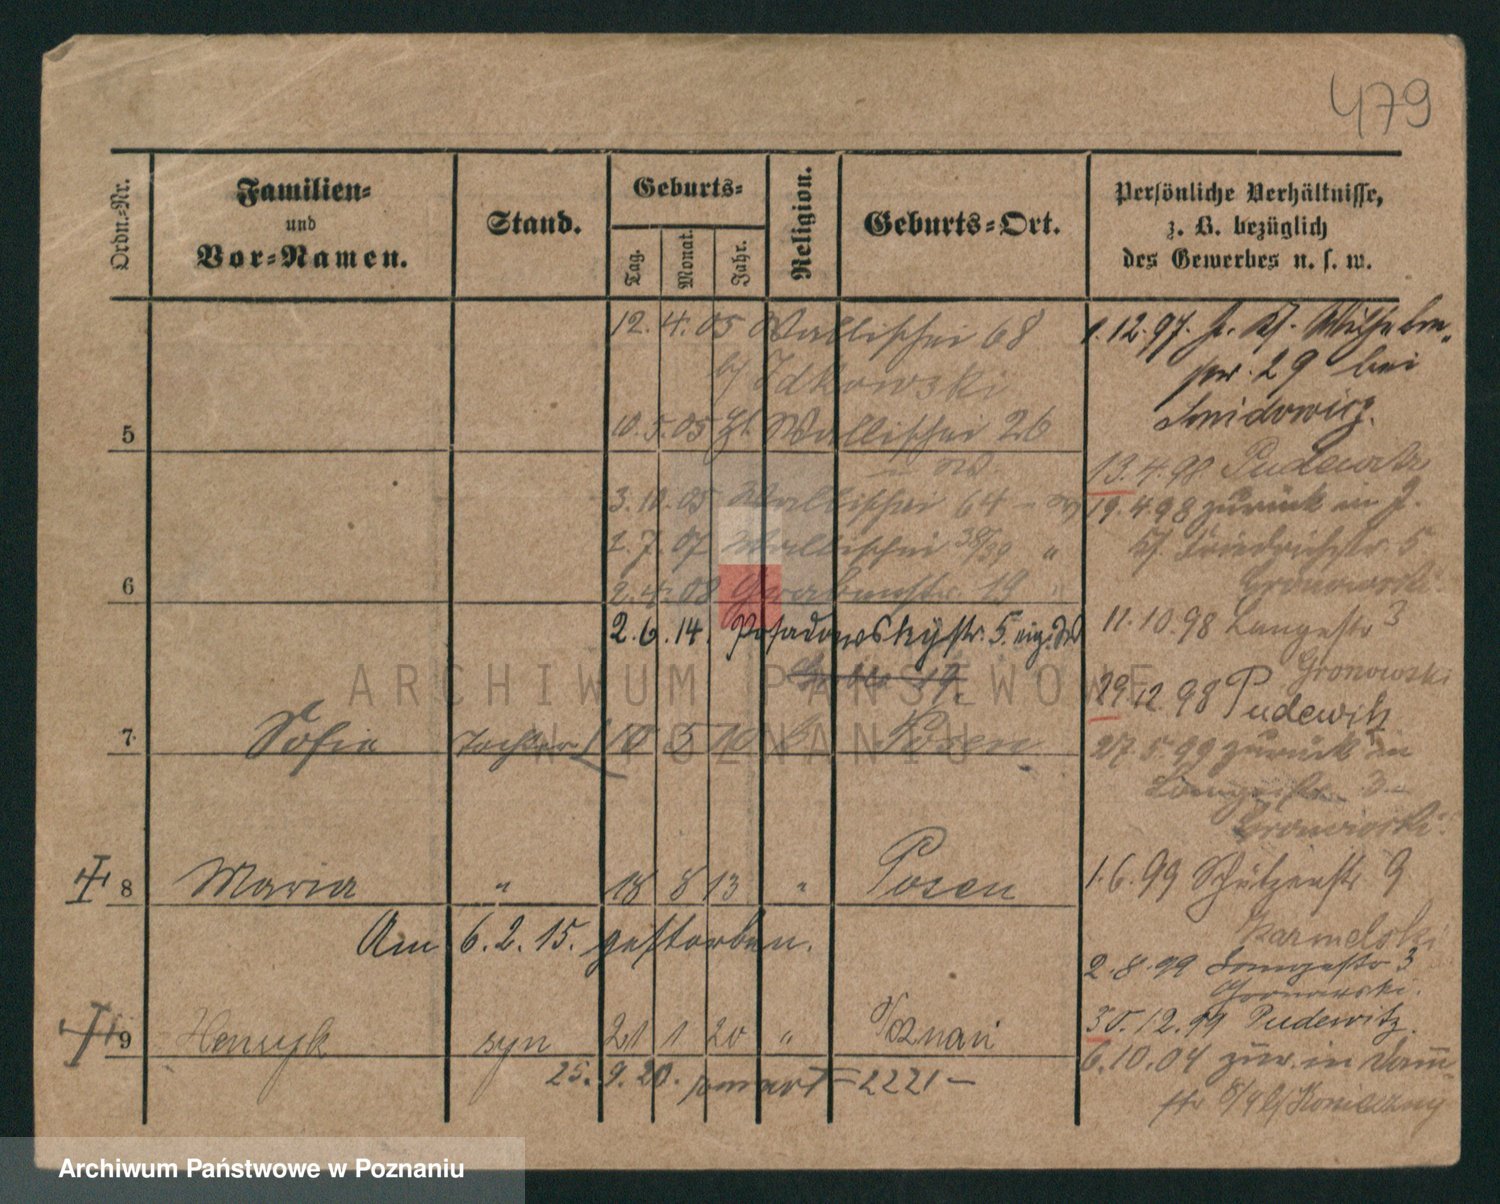 479
Ordn.-Nr.
Familien-
und
Vor-Namen.
Stand.
Geburts-
Tag.
Monat.
Jahr.
Religion.
Geburts-Ort.
Persönliche Verhältnisse,
z. B. bezüglich
des Gewerbes u. s. w.
12. 4. 05 Wallischei 68
b/ Idkowski
5
10. 5. 05 Wallischei 26
3. 10. 05 Wallischei 64
2. 7. 07 Wallischei 38/39 "
6
2. 4. 08 Grabenstr. 19 "
2. 6. 14. Posadowskystr. 5.
7
Sofia Tochter 10 5 10 Posen
8
Maria " 18 8 13 " Posen
Am 6. 2. 15. gestorben.
9
Henryk syn 21 1 20 " Poznań
25. 9. 20. zmarł = 2221 —
1. 12. 97.
29 bei
13. 4. 98 Pudewitz
19. 4. 98 zurück in
b/ Friedrichstr. 5
Gronowski.
11. 10. 98 Langestr 3
Gronowski
29. 12. 98 Pudewitz
27. 5. 99 zurück in
Langestr. 3
Gronowski.
1. 6. 99 Schützenstr 9
Karmelski
2. 8. 99 Langestr 3
Gronowski.
30. 12. 99 Pudewitz.
6. 10. 04 zur. in
str 8/9 b/ Konieczny
ARCHIWUM PAŃSTWOWE
W POZNANIU
Archiwum Państwowe w Poznaniu